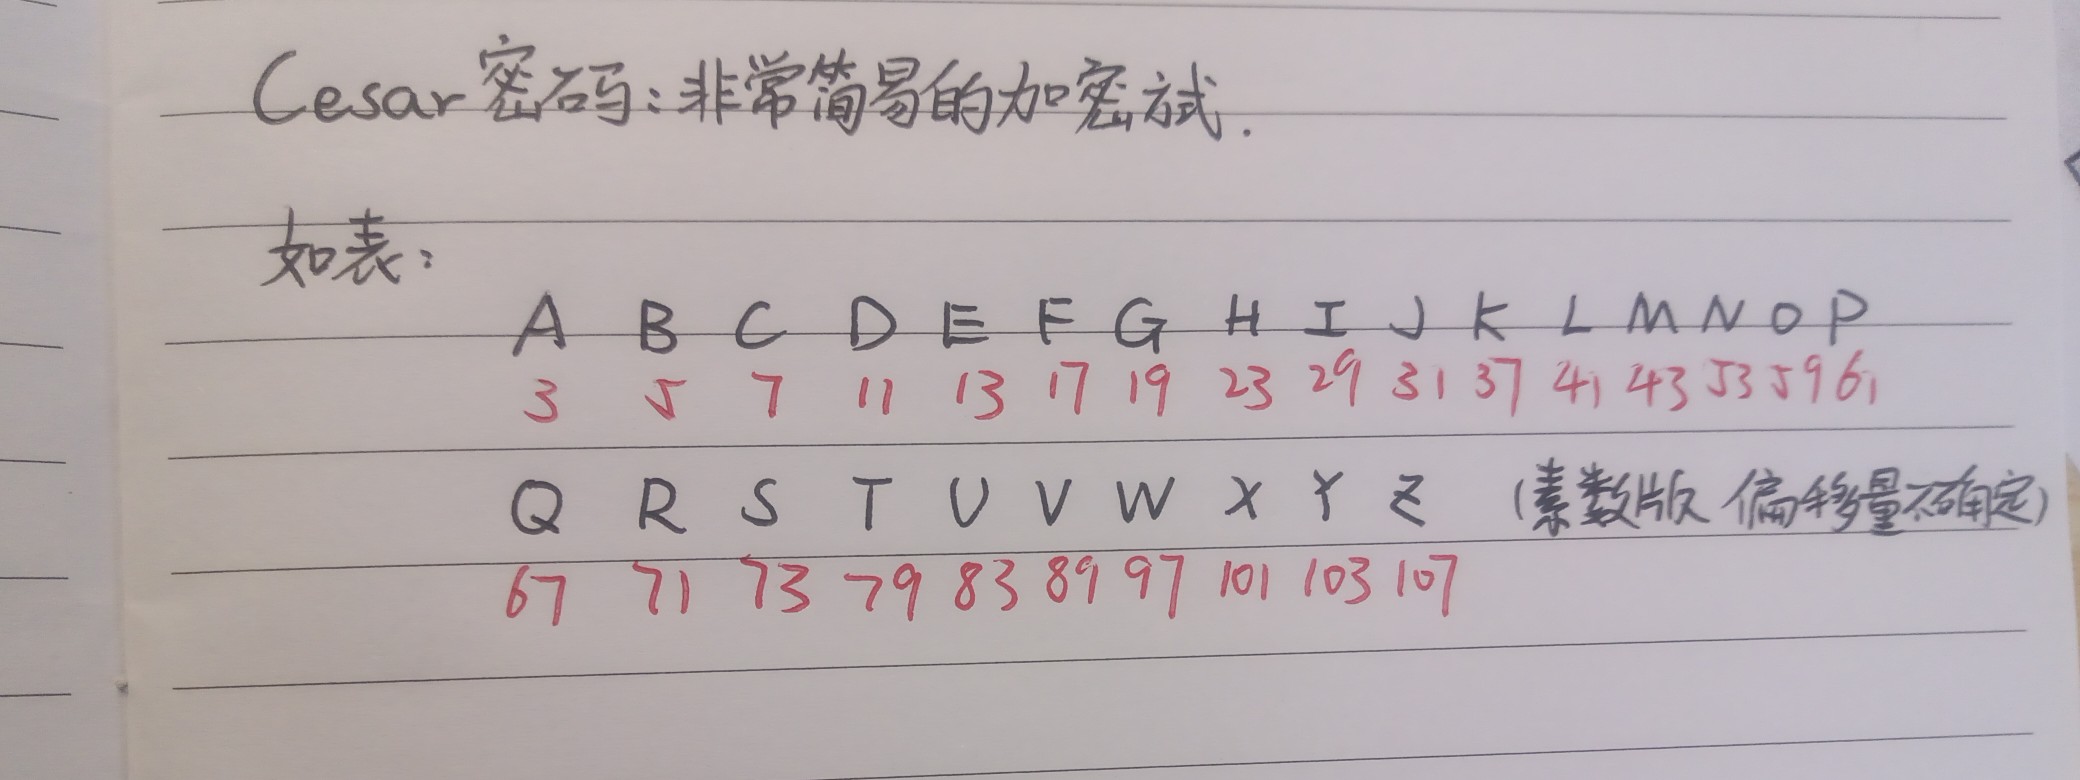 Cesar密码：非常简易的加密试.
如表：
A B C D E F G H I J K L M N O P
3 5 7 11 13 17 19 23 29 31 37 41 43 53 59 61
Q R S T U V W X Y Z (素数版 偏移量不确定)
67 71 73 79 83 89 97 101 103 107